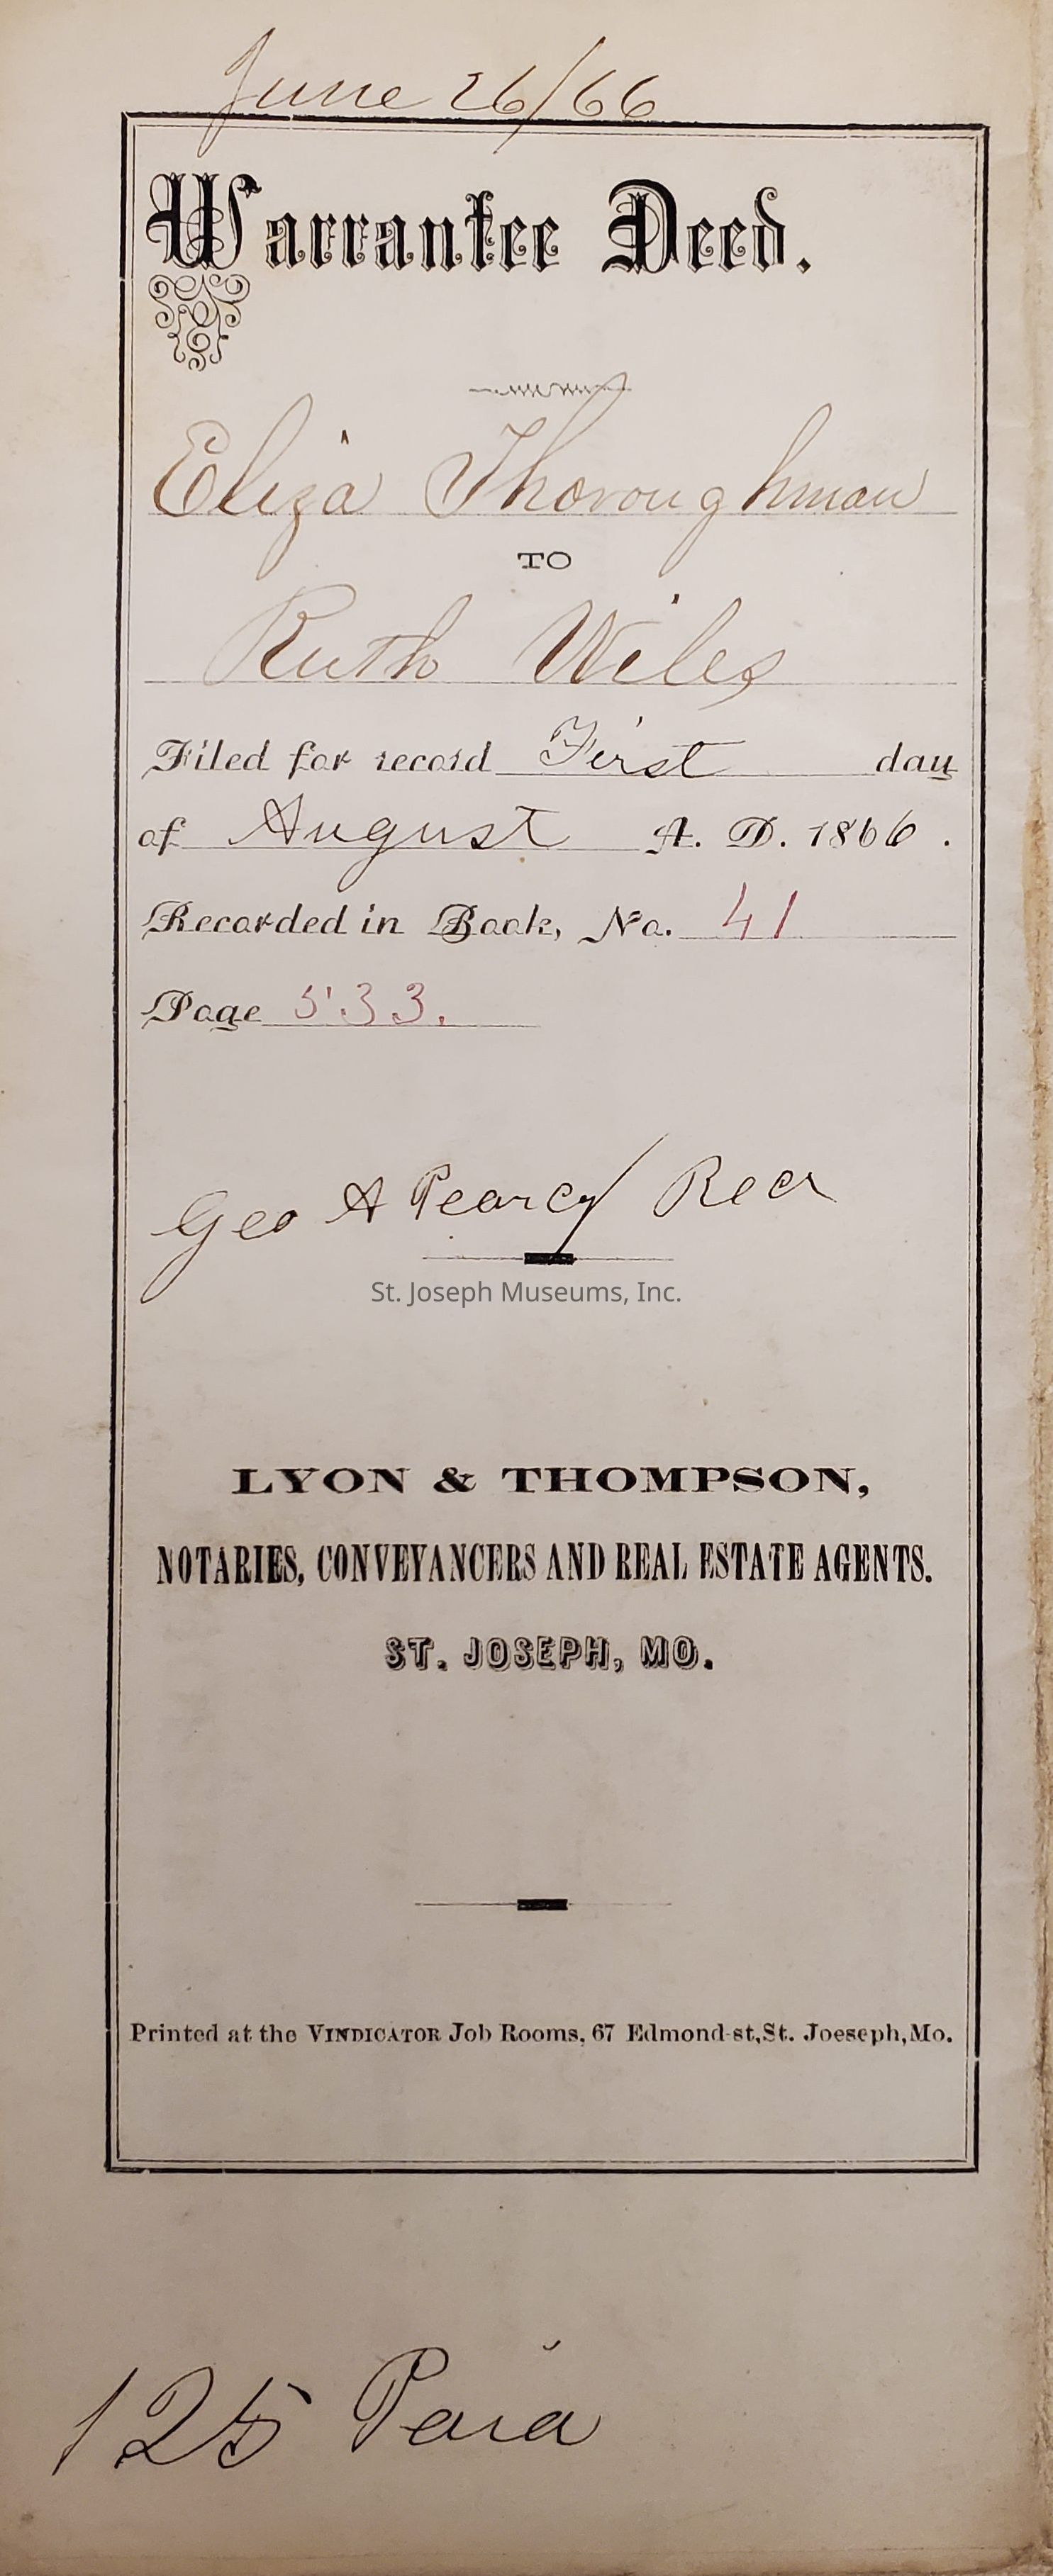 June 26/66
Warrantee Deed.
Eliza Thoroughman
TO
Ruth Wiles
Filed for record First day
of August A. D. 1866.
Recorded in Book, No. 41
Page 533.
Geo A Pearcy Recr
St. Joseph Museums, Inc.
LYON & THOMPSON,
NOTARIES, CONVEYANCERS AND REAL ESTATE AGENTS.
ST. JOSEPH, MO.
Printed at the VINDICATOR Job Rooms, 67 Edmond-st, St. Joeseph, Mo.
125 Paid